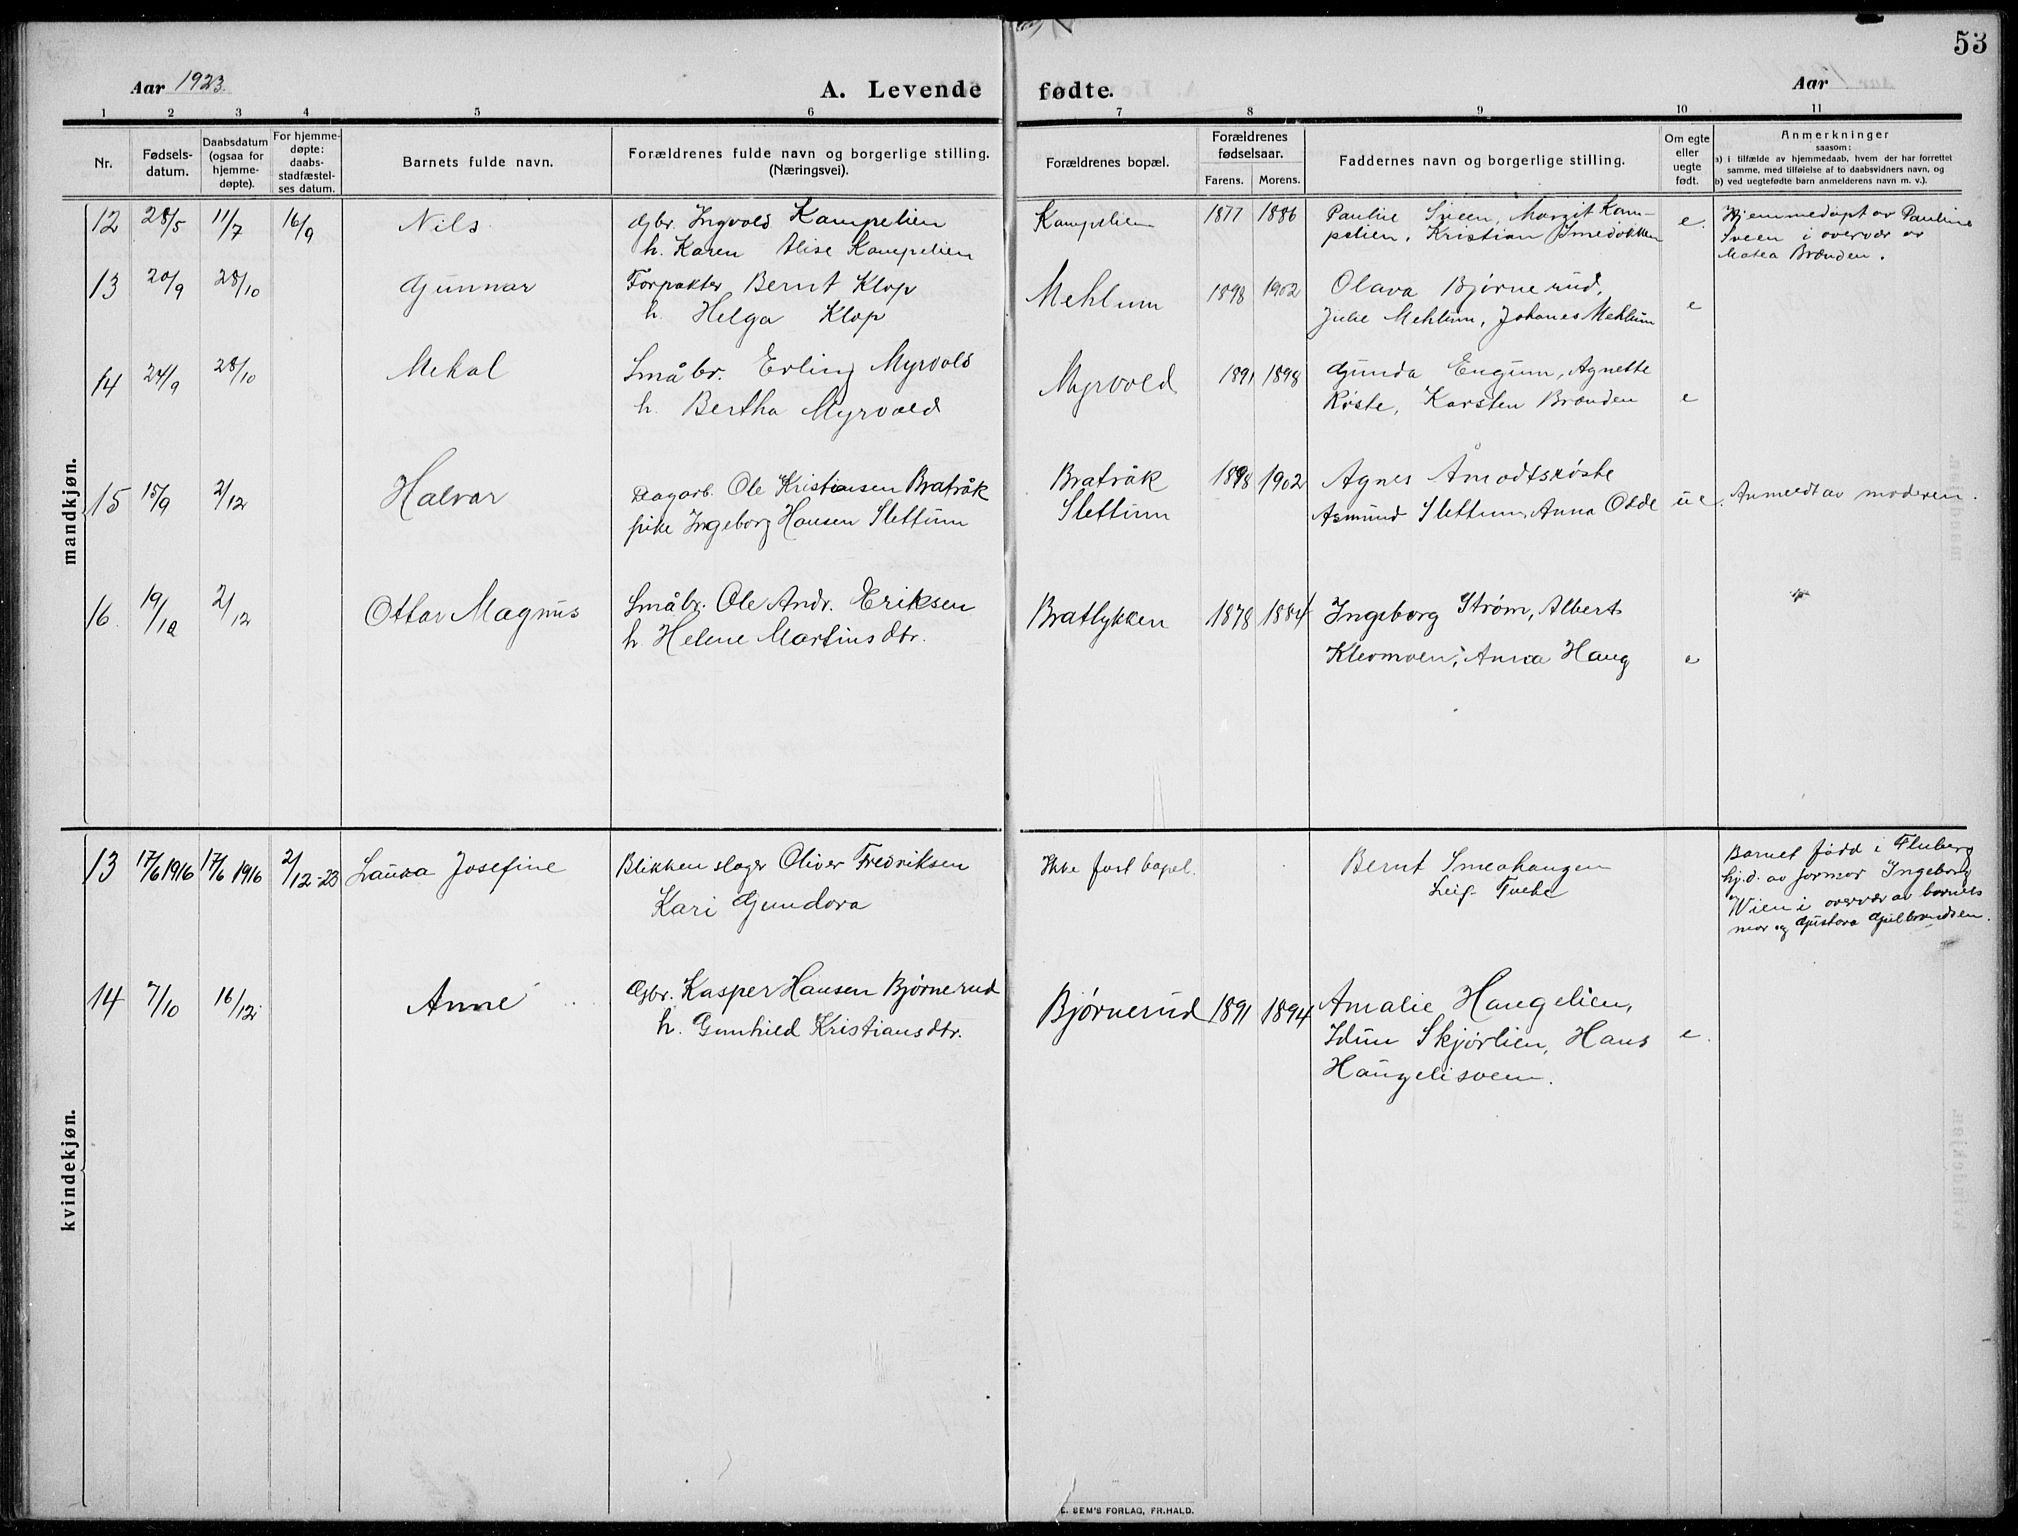 53
Aar 1923.
A. Levende fødte.
Aar
1 2 3 4 5 6 7 8 9 10 11
Nr.
Fødsels-
datum.
Daabsdatum
(ogsaa for
hjemme-
døpte).
For hjemme-
døpte:
daabs-
stadfæstel-
ses datum.
Barnets fulde navn.
Forældrenes fulde navn og borgerlige stilling.
(Næringsvei).
Forældrenes bopæl.
Forældrenes
fødselsaar.
Farens. Morens.
Faddernes navn og borgerlige stilling.
Om egte
eller
uegte
født.
Anmerkninger
saasom:
a) i tilfælde av hjemmedaab, hvem der har forrettet
samme, med tilføielse af to daabsvidners navn, og
b) ved uegtefødte barn anmelderens navn m. v.).
mandkjøn.
12 28/5 11/7 16/9 Nils Gbr. Ingvold Kampelien
h. Karen Alise Kampelien
Kampelien 1877 1886 Pauline Sveen, Margit Kam-
pelien, Kristian Smedøkken
e.
Hjemmedøpt av Pauline
Sveen i overvær av
Matea Brænden.
13 20/9 28/10 Gunnar Forpakter Bernt Klop
h. Helga Klop
Mehlum 1898 1902 Olava Bjørnerud,
Julie Mehlum, Johanes Mehlum
e
14 24/9 28/10 Mekal Småbr. Erling Myrvold
h. Bertha Myrvold
Myrvold 1891 1898 Gunda Engum, Agnette
Røste, Karsten Brænden
e
15 15/9 2/12 Halvar Dagarb. Ole Kristiansen Bratråk
pike Ingeborg Hansen Slettum
Bratråk
Slettum
1898 1902 Agnes Åmodtsrøste
Asmund Slettum, Anna Odde
ue. Anmeldt av moderen.
16. 19/10 2/12 Ottar Magnus Småbr. Ole Andr. Eriksen
h. Helene Martinsdtr.
Bratlykken 1878 1884 Ingeborg Strøm, Albert
Klevmoen, Anna Haug
e
kvindekjøn.
13 17/6 1916 17/6 1916 2/12-23 Laura Josefine Blikkenslager Oliver Fredriksen
Kari Gundora
Ikke fast bopel. Bernt Smeahaugen
Leif Tvete
Barnet født i Fluberg
hj.d. av farmor Ingeborg
Wien i overvær av barnets
mor og Gustava Gulbrandsen.
14 7/10 16/12 Anne Gbr. Kasper Hansen Bjørnerud
h. Gunhild Kristiansdtr.
Bjørnerud 1891 1894 Amalie Haugelien,
Idun Skjørlien, Hans
Haugelisveen.
e.
E. SEM'S FORLAG, FR.HALD.